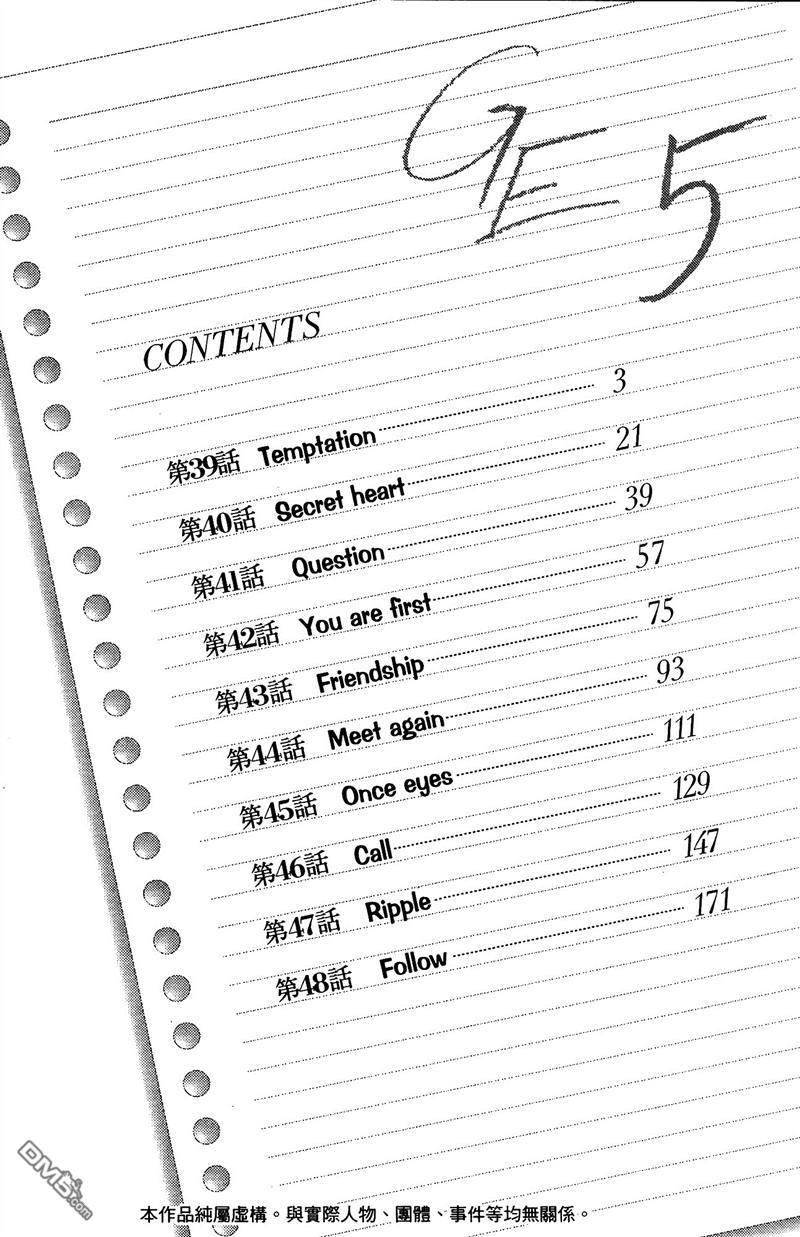 GE 5
CONTENTS
第39話 Temptation 3
第40話 Secret heart 21
第41話 Question 39
第42話 You are first 57
第43話 Friendship 75
第44話 Meet again 93
第45話 Once eyes 111
第46話 Call 129
第47話 Ripple 147
第48話 Follow 171
DM5
本作品純屬虛構。與實際人物、團體、事件等均無關係。